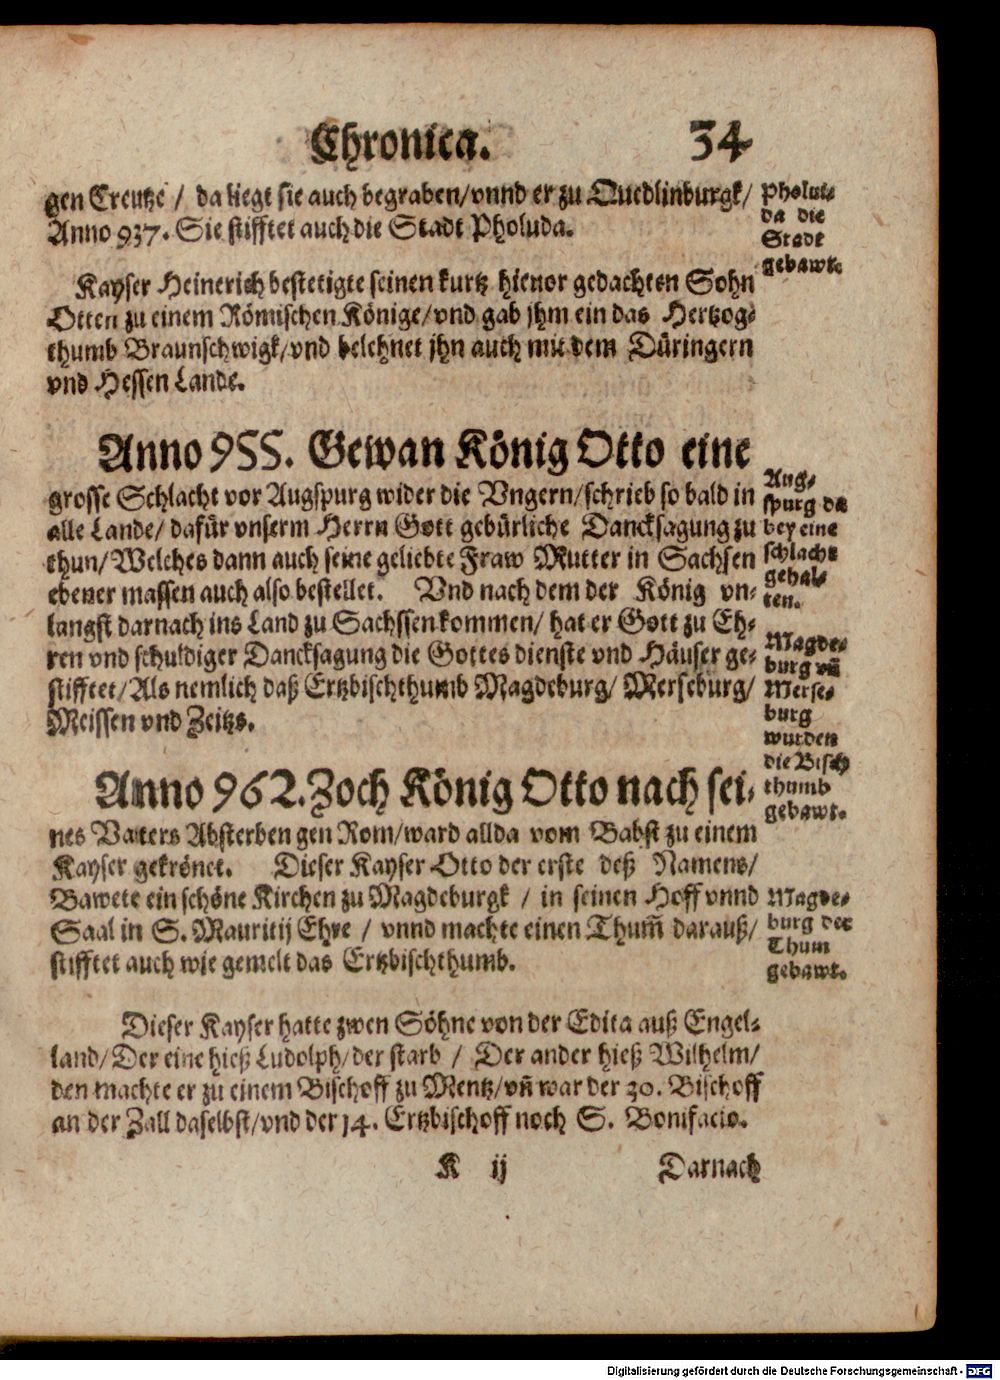 Chronica. 34
gen Creutze / da liegt sie auch begraben/vnnd er zu Quedlinburgk/
Anno 937. Sie stifftet auch die Stadt Pholuda.
Pholu-
da die
Stadt
gebawt.
Kayser Heinerich bestetigte seinen kurtz hieuor gedachten Sohn
Otten zu einem Römischen Könige/vnd gab jhm ein das Hertzog-
thumb Braunschwigk/vnd belehnet jhn auch mit dem Düringern
vnd Hessen Lande.
Anno 955. Gewan König Otto eine
grosse Schlacht vor Augspurg wider die Vngern/schrieb so bald in
alle Lande/ dafür vnserm Herrn Gott gebürliche Dancksagung zu
thun/Welches dann auch seine geliebte Fraw Mutter in Sachsen
ebener massen auch also bestellet. Vnd nach dem der König vn-
langst darnach ins Land zu Sachssen kommen/ hat er Gott zu Eh-
ren vnd schuldiger Dancksagung die Gottes dienste vnd Häuser ge-
stifftet/Als nemlich daß Ertzbischthumb Magdeburg/ Merseburg/
Meissen vnd Zeitzs.
Aug-
spurg da
bey eine
schlacht
gehal-
ten.
Magde-
burg vñ
Merse-
burg
wurden
die Bisch
thumb
gebawt.
Anno 962. Zoch König Otto nach sei-
nes Vatters Absterben gen Rom/ward allda vom Babst zu einem
Kayser gekrönet. Dieser Kayser Otto der erste deß Namens/
Bawete ein schöne Kirchen zu Magdeburgk / in seinen Hoff vnnd
Saal in S. Mauritij Ehre / vnnd machte einen Thum̃ darauß/
stifftet auch wie gemelt das Ertzbischthumb.
Magde-
burg der
Thum
gebawt.
Dieser Kayser hatte zwen Söhne von der Edita auß Engel-
land/Der eine hieß Ludolph/der starb / Der ander hieß Wilhelm/
den machte er zu einem Bischoff zu Mentz/vñ war der 30. Bischoff
an der Zall daselbst/vnd der 14. Ertzbischoff noch S. Bonifacio.
K ij Darnach
Digitalisierung gefördert durch die Deutsche Forschungsgemeinschaft - DFG